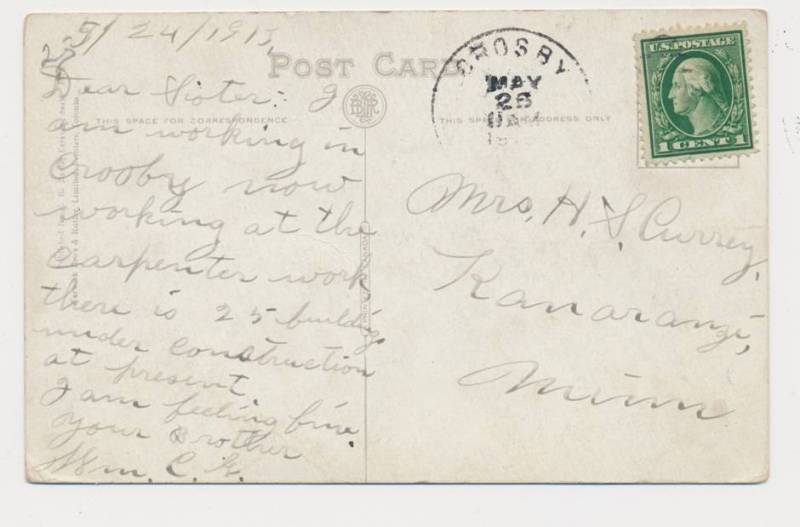 5/24/1913,
POST CARD
THIS SPACE FOR CORRESPONDENCE
THIS SPACE FOR ADDRESS ONLY
Dear Sister: I
am working in
Crosby now
working at the
Carpenter work
there is 25 buildig.
under construction
at present.
I am feeling fine.
your Brother
Wm. C. G.
CROSBY
MAY
26
U.S. POSTAGE
1 CENT 1
Mrs. H. S. Currey,
Kanaranzi,
Minn